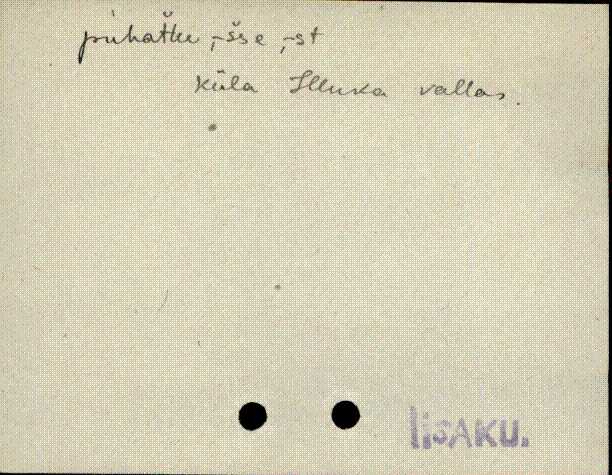 pühatke, -šse, -st
küla Illuka vallas.
IisAKU.